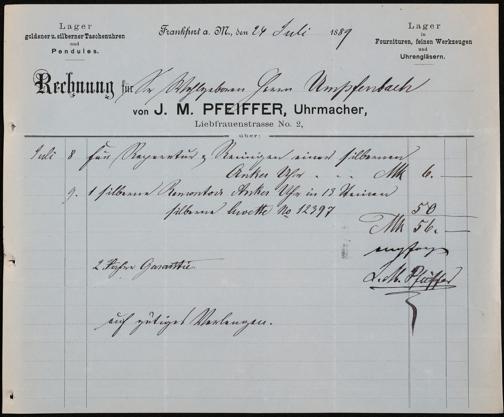 Lager
goldener u. silberner Taschenuhren
und
Pendules.
Frankfurt a. M., den 24 Juli 1889
Lager
in
Fournituren, feinen Werkzeugen
und
Uhrengläsern.
Rechnung für Sr Wohlgeboren Herrn Umpfenbach
von J. M. PFEIFFER, Uhrmacher,
Liebfrauenstrasse No. 2,
über:
Juli 8 Für Reparatur & Reinigen einer silbernen
Anker Uhr . . . Mk 6.—
9. 1 silberne Remontoir Anker Uhr in 13 Steinen
silberne Cuvette No 12397 50
Mk 56.—
2 Jahre Garantie
J. M. Pfeiffer
auf gütiges Verlangen.